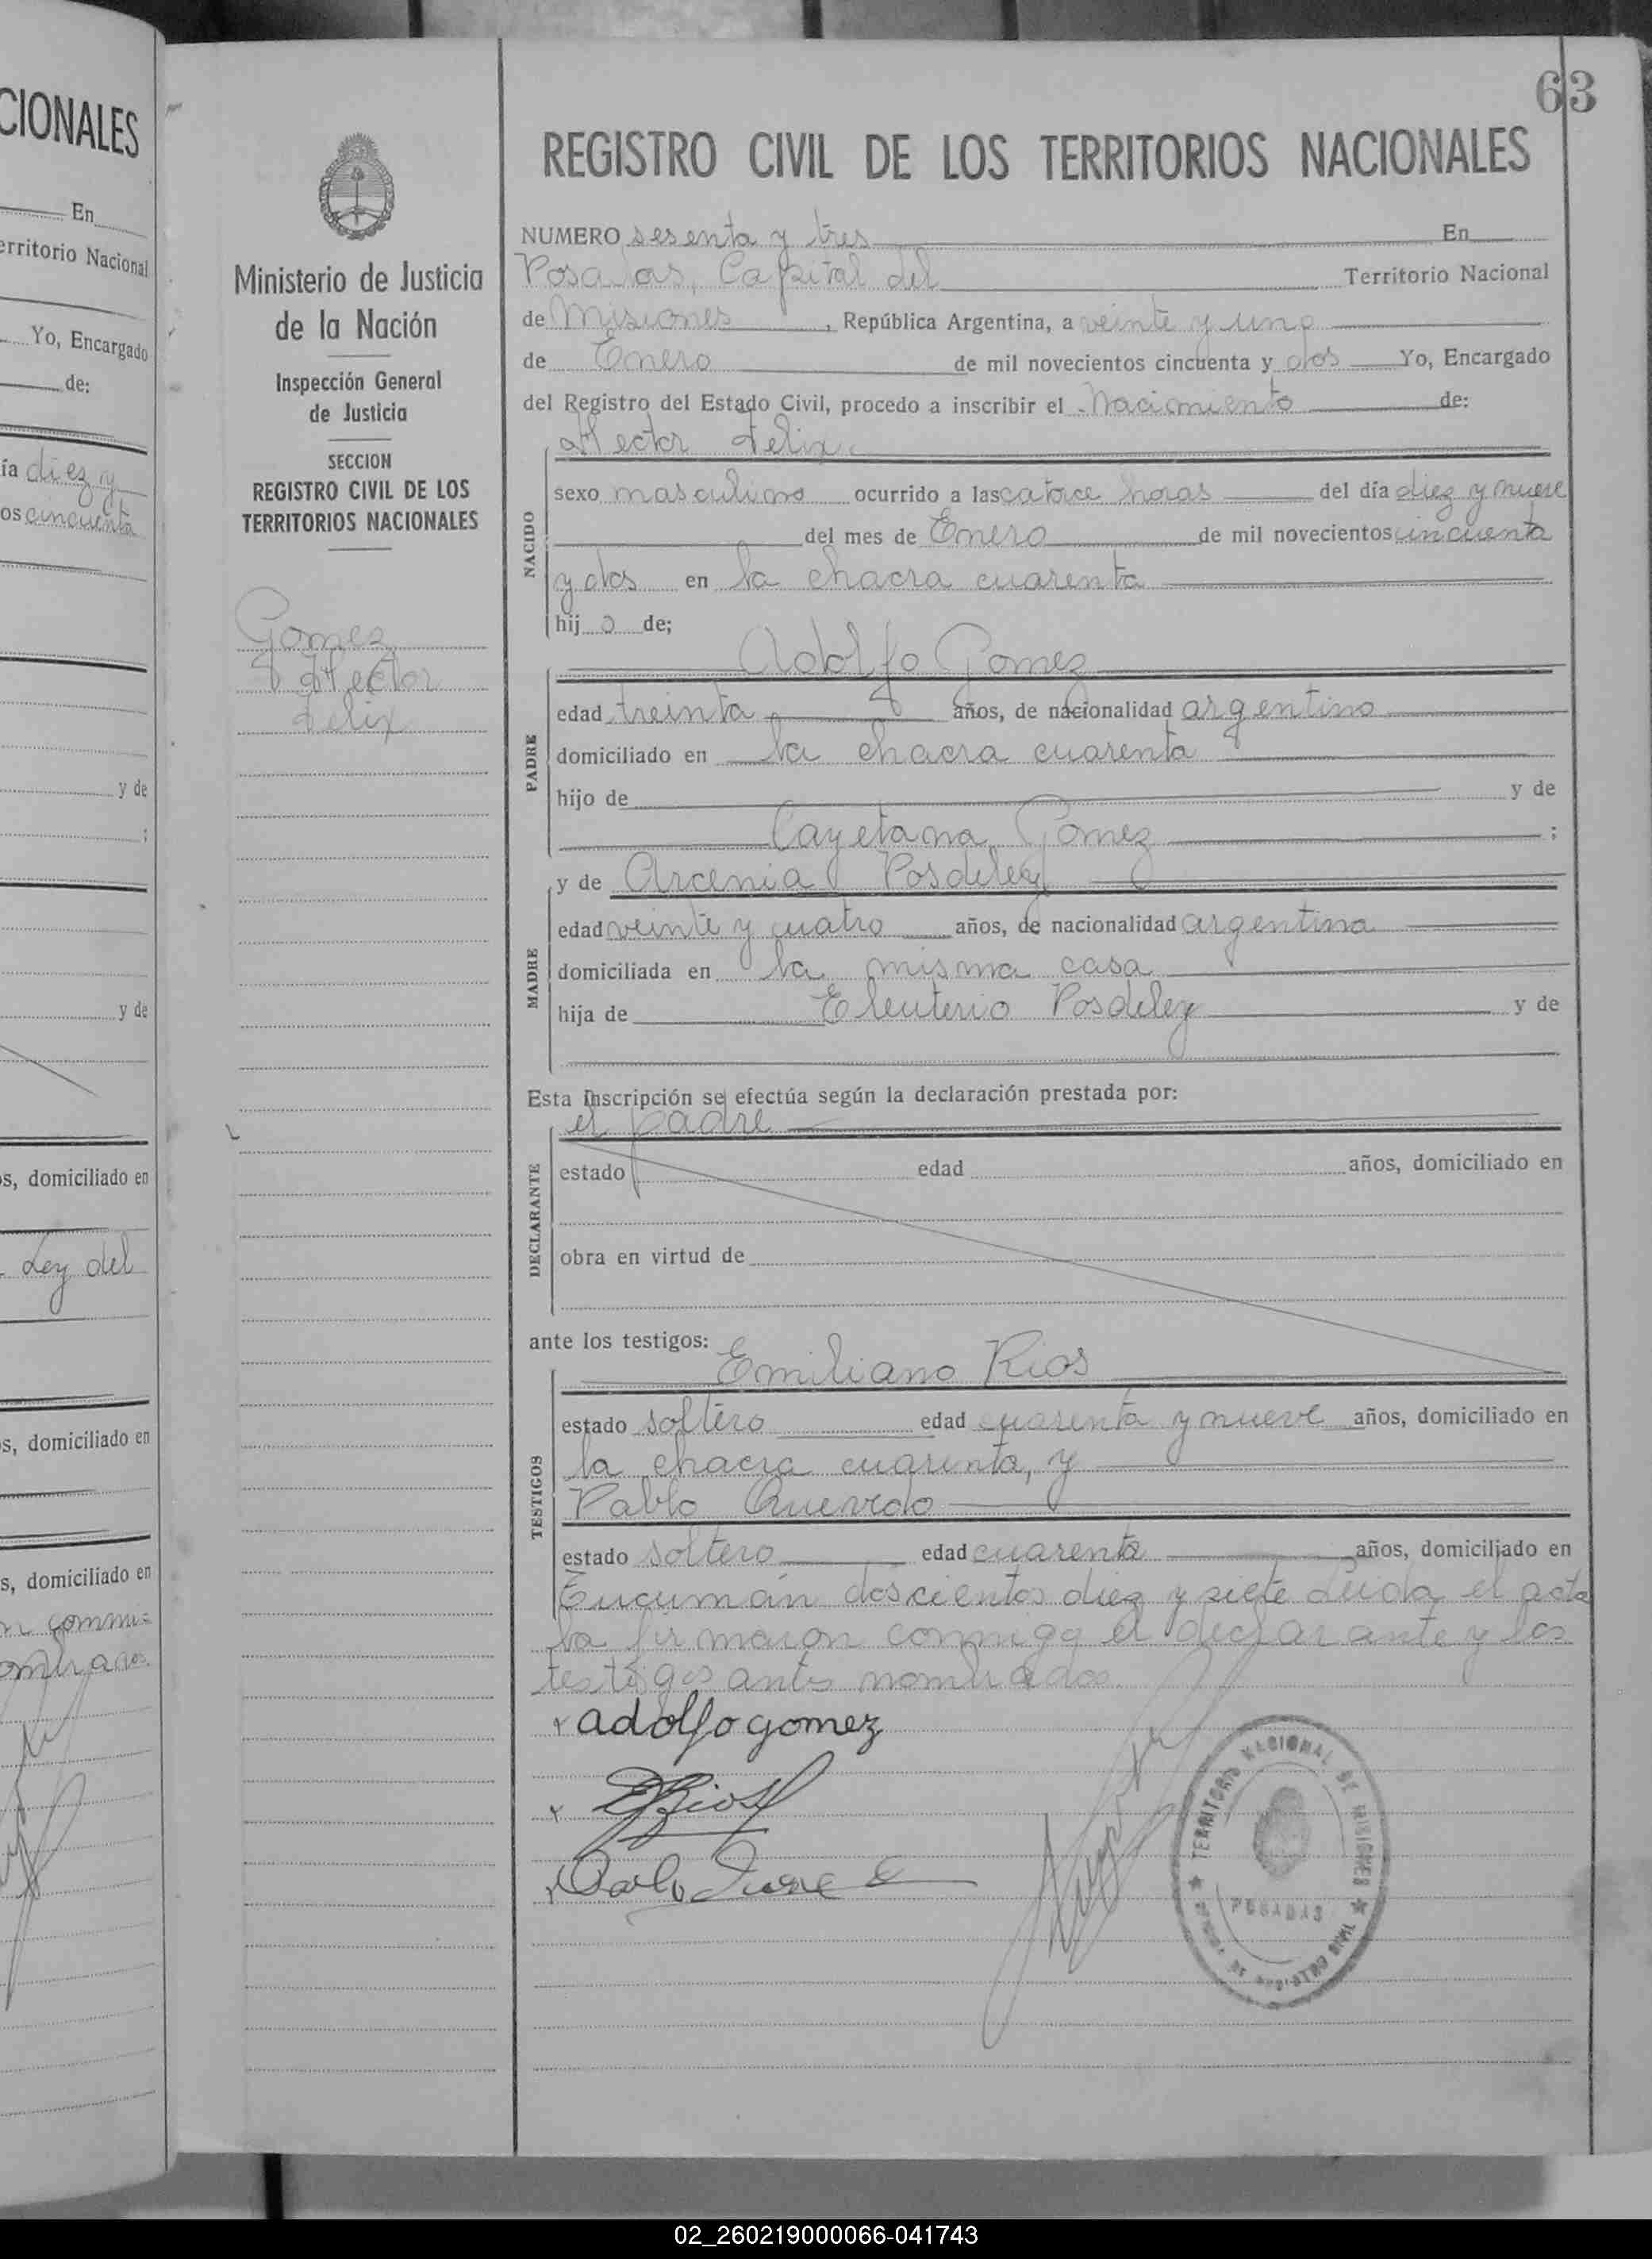 CIONALES
En
erritorio Nacional
Yo, Encargado
de:
ía diez y
os cincuenta
y de
;
y de
s, domiciliado en
Ley del
s, domiciliado en
s, domiciliado en
n conmi=
ombrados.
Ministerio de Justicia
de la Nación
Inspección General
de Justicia
SECCION
REGISTRO CIVIL DE LOS
TERRITORIOS NACIONALES
Gomez
Hector
Felix
63
REGISTRO CIVIL DE LOS TERRITORIOS NACIONALES
NUMERO sesenta y tres En
Posadas, Capital del Territorio Nacional
de Misiones, República Argentina, a veinte y uno
de Enero de mil novecientos cincuenta y dos Yo, Encargado
del Registro del Estado Civil, procedo a inscribir el Nacimiento de:
Hector Felix
NACIDO
sexo masculino ocurrido a las catorce horas del día diez y nueve
del mes de Enero de mil novecientos cincuenta
y dos en la chacra cuarenta
hijo de;
Adolfo Gomez
PADRE
edad treinta años, de nacionalidad argentino
domiciliado en la chacra cuarenta
hijo de y de
Cayetana Gomez ;
y de Arcenia Posdeley
MADRE
edad veinte y cuatro años, de nacionalidad argentina
domiciliada en la misma casa
hija de Eleuterio Posdeley y de
Esta inscripción se efectúa según la declaración prestada por:
el padre
DECLARANTE
estado edad años, domiciliado en
obra en virtud de
ante los testigos:
Emiliano Rios
TESTIGOS
estado soltero edad cuarenta y nueve años, domiciliado en
la chacra cuarenta, y
Pablo Quevedo
estado soltero edad cuarenta años, domiciliado en
Tucumán doscientos diez y siete Leida el acta
la firmaron conmigo el declarante y los
testigos antes nombrados.
adolfo gomez
ERios
Pablo
TERRITORIO NACIONAL DE MISIONES
POSADAS
REGISTRO CIVIL
02_260219000066-041743